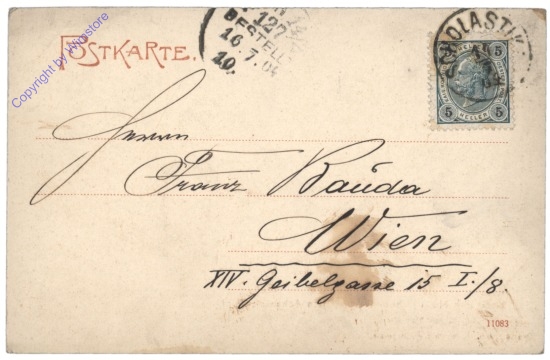 POSTKARTE.
127
BESTELL
16.7.04
10.
SCHOLASTIK
5 5
5 HELLER 5
Herrn
Franz Bauda
Wien
XIV. Geibelgasse 15 I./8.
11083
Copyright by Wnrstore